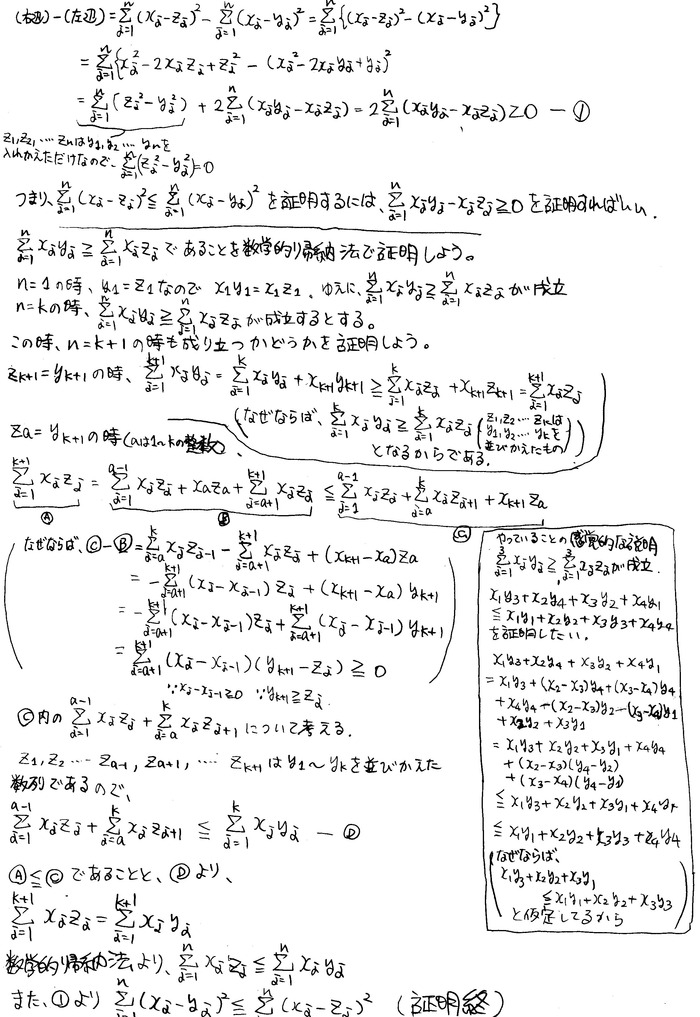 (右辺)-(左辺) = Σ_{j=1}^{n}(x_j-z_j)² - Σ_{j=1}^{n}(x_j-y_j)² = Σ_{j=1}^{n}{(x_j-z_j)² - (x_j-y_j)²}
= Σ_{j=1}^{n}{x_j²-2x_jz_j+z_j² - (x_j²-2x_jy_j+y_j)²
= Σ_{j=1}^{n}(z_j²-y_j²) + 2Σ_{j=1}^{n}(x_jy_j-x_jz_j) = 2Σ_{j=1}^{n}(x_jy_j-x_jz_j) ≧0 — ①
z₁,z₂,… z_nはy₁,y₂… y_nを
入れかえただけなので、Σ_{j=1}^{n}(z_j²-y_j²)=0
つまり、Σ_{j=1}^{n}(x_j-z_j)²≦Σ_{j=1}^{n}(x_j-y_j)² を証明するには、Σ_{j=1}^{n} x_jy_j-x_jz_j≧0 を証明すればいい.
Σ_{j=1}^{n} x_jy_j ≧ Σ_{j=1}^{n} x_jz_j であることを数学的帰納法で証明しよう。
n=1の時、y₁=z₁なので x₁y₁=x₁z₁. ゆえに、Σ_{j=1}^{n} x_jy_j≧Σ_{j=1}^{n} x_jz_jが成立
n=kの時、Σ_{j=1}^{k} x_jy_j≧Σ_{j=1}^{n} x_jz_jが成立するとする。
この時、n=k+1の時も成り立つかどうかを証明しよう。
z_{k+1}=y_{k+1}の時、Σ_{j=1}^{k+1} x_jy_j = Σ_{j=1}^{k} x_jy_j + x_{k+1}y_{k+1} ≧ Σ_{j=1}^{k} x_jz_j + x_{k+1}z_{k+1} = Σ_{j=1}^{k+1} x_jz_j
(なぜならば、Σ_{j=1}^{k} x_jy_j≧Σ_{j=1}^{k} x_jz_j (z₁,z₂… z_kは
y₁,y₂… y_kを
並びかえたもの)
となるからである.)
z_a=y_{k+1}の時(aは1~kの整数)、
Σ_{j=1}^{k+1} x_jz_j = Σ_{j=1}^{a-1} x_jz_j + x_az_a + Σ_{j=a+1}^{k+1} x_jz_j ≦ Σ_{j=1}^{a-1} x_jz_j + Σ_{j=a}^{k} x_jz_{j+1} + x_{k+1}z_a
Ⓐ Ⓑ Ⓒ
(なぜならば、Ⓒ-Ⓑ=Σ_{j=a}^{k} x_jz_{j-1} - Σ_{j=a+1}^{k+1} x_jz_j + (x_{k+1}-x_a)z_a
= -Σ_{j=a+1}^{k+1}(x_j-x_{j-1})z_j + (x_{k+1}-x_a)y_{k+1}
= -Σ_{j=a+1}^{k+1}(x_j-x_{j-1})z_j + Σ_{j=a+1}^{k+1}(x_j-x_{j-1})y_{k+1}
= Σ_{j=a+1}^{k+1}(x_j-x_{j-1})(y_{k+1}-z_j) ≧ 0
∵x_j-x_{j-1}≧0 ∵y_{k+1}≧z_j)
Ⓒ内の Σ_{j=1}^{a-1} x_jz_j + Σ_{j=a}^{k} x_jz_{j+1} について考える.
z₁,z₂… z_{a-1},z_{a+1},… z_{k+1}はy₁~y_kを並びかえた
数列であるので、
Σ_{j=1}^{a-1} x_jz_j + Σ_{j=a}^{k} x_jz_{j+1} ≦ Σ_{j=1}^{k} x_jy_j — Ⓓ
Ⓐ≦Ⓒであることと、Ⓓより、
Σ_{j=1}^{k+1} x_jz_j = Σ_{j=1}^{k+1} x_jy_j
数学的帰納法より、Σ_{j=1}^{n} x_jz_j ≦ Σ_{j=1}^{n} x_jy_j
また、①より Σ_{j=1}^{n}(x_j-y_j)² ≦ Σ_{j=1}^{n}(x_j-z_j)² (証明終)
やっていることの感覚的な証明
Σ_{j=1}^{3} x_jy_j≧Σ_{j=1}^{3} x_jz_jが成立.
x₁y₃+x₂y₄+x₃y₂+x₄y₁
≦x₁y₁+x₂y₂+x₃y₃+x₄y₄
を証明したい.
x₁y₃+x₂y₄+x₃y₂+x₄y₁
=x₁y₃+(x₂-x₃)y₄+(x₃-x₄)y₄
+x₄y₄-(x₂-x₃)y₂-(x₃-x₄)y₁
+x₂y₂+x₃y₁
=x₁y₃+x₂y₂+x₃y₁+x₄y₄
+(x₂-x₃)(y₄-y₂)
+(x₃-x₄)(y₄-y₁)
≦x₁y₃+x₂y₂+x₃y₁+x₄y₄
≦x₁y₁+x₂y₂+x₃y₃+x₄y₄
なぜならば、
(x₁y₃+x₂y₂+x₃y₁
≦x₁y₁+x₂y₂+x₃y₃
と仮定してるから)